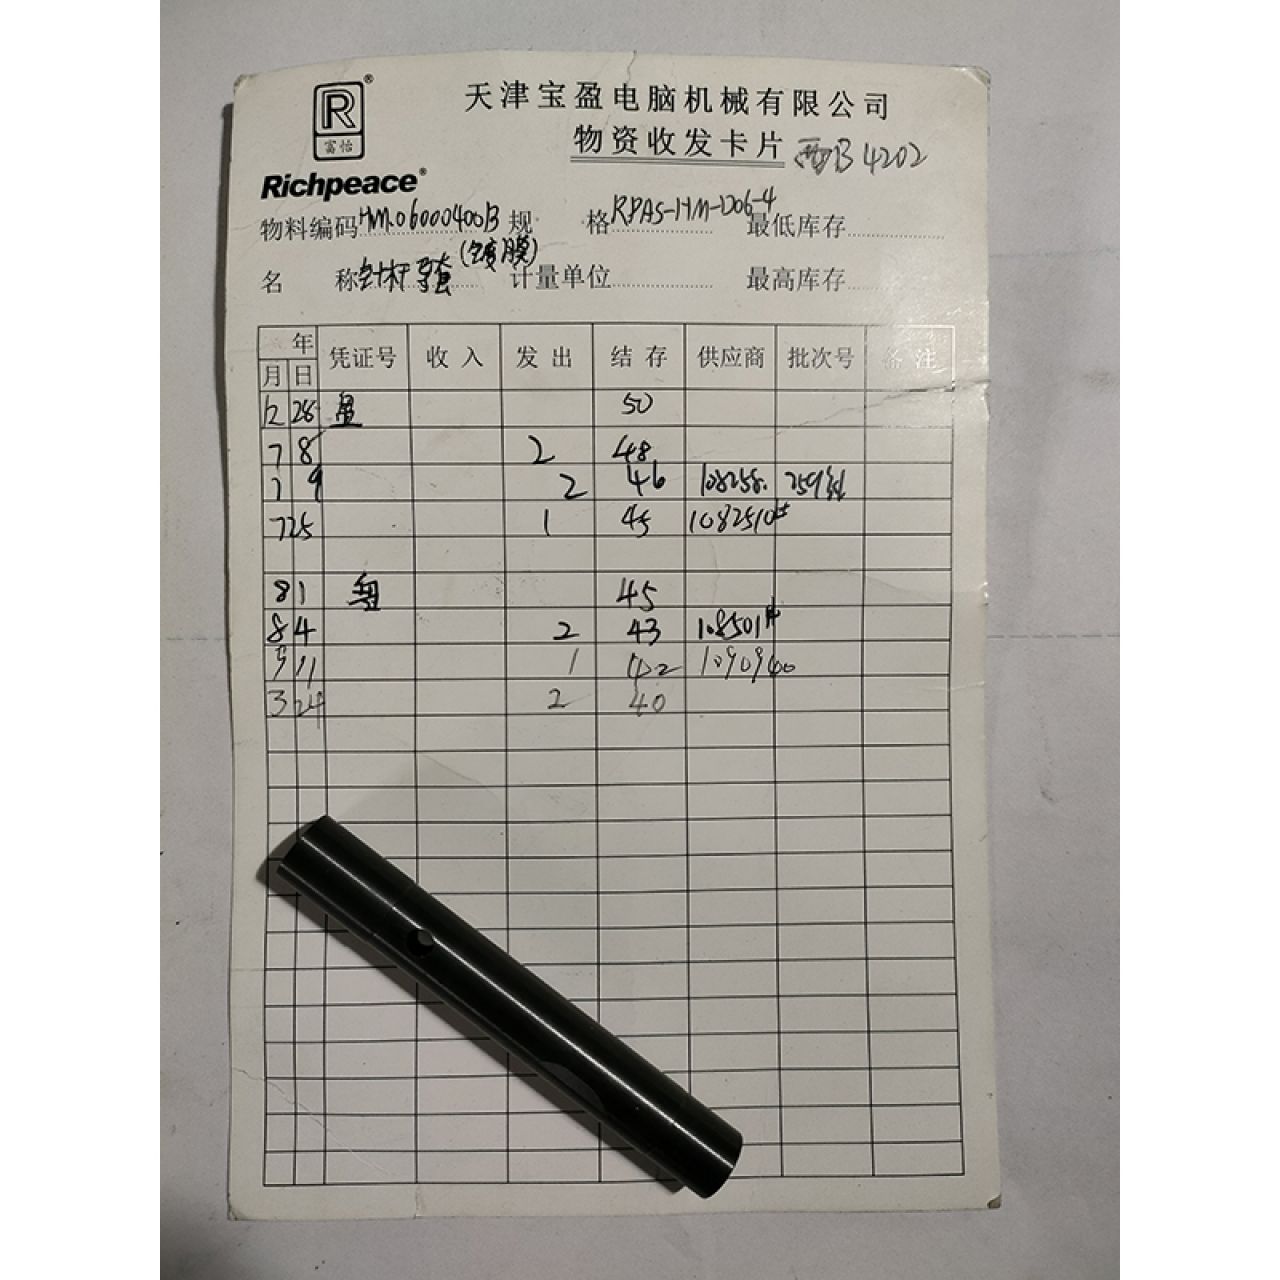 R®
富怡
Richpeace®
天津宝盈电脑机械有限公司
物资收发卡片 西B4202
物料编码 HM06000400B 规格 RPAS-HM-D06-4 最低库存
名称 针杆导套(镀膜) 计量单位 最高库存
年 凭证号 收入 发出 结存 供应商 批次号 备注
月 日
12 26 盈 50
7 8 2 48
7 9 2 46 108258.
7 25 1 45 1082510#
8 1 盘 45
8 4 2 43 108501#
9 11 1 42 1090940
3 24 2 40